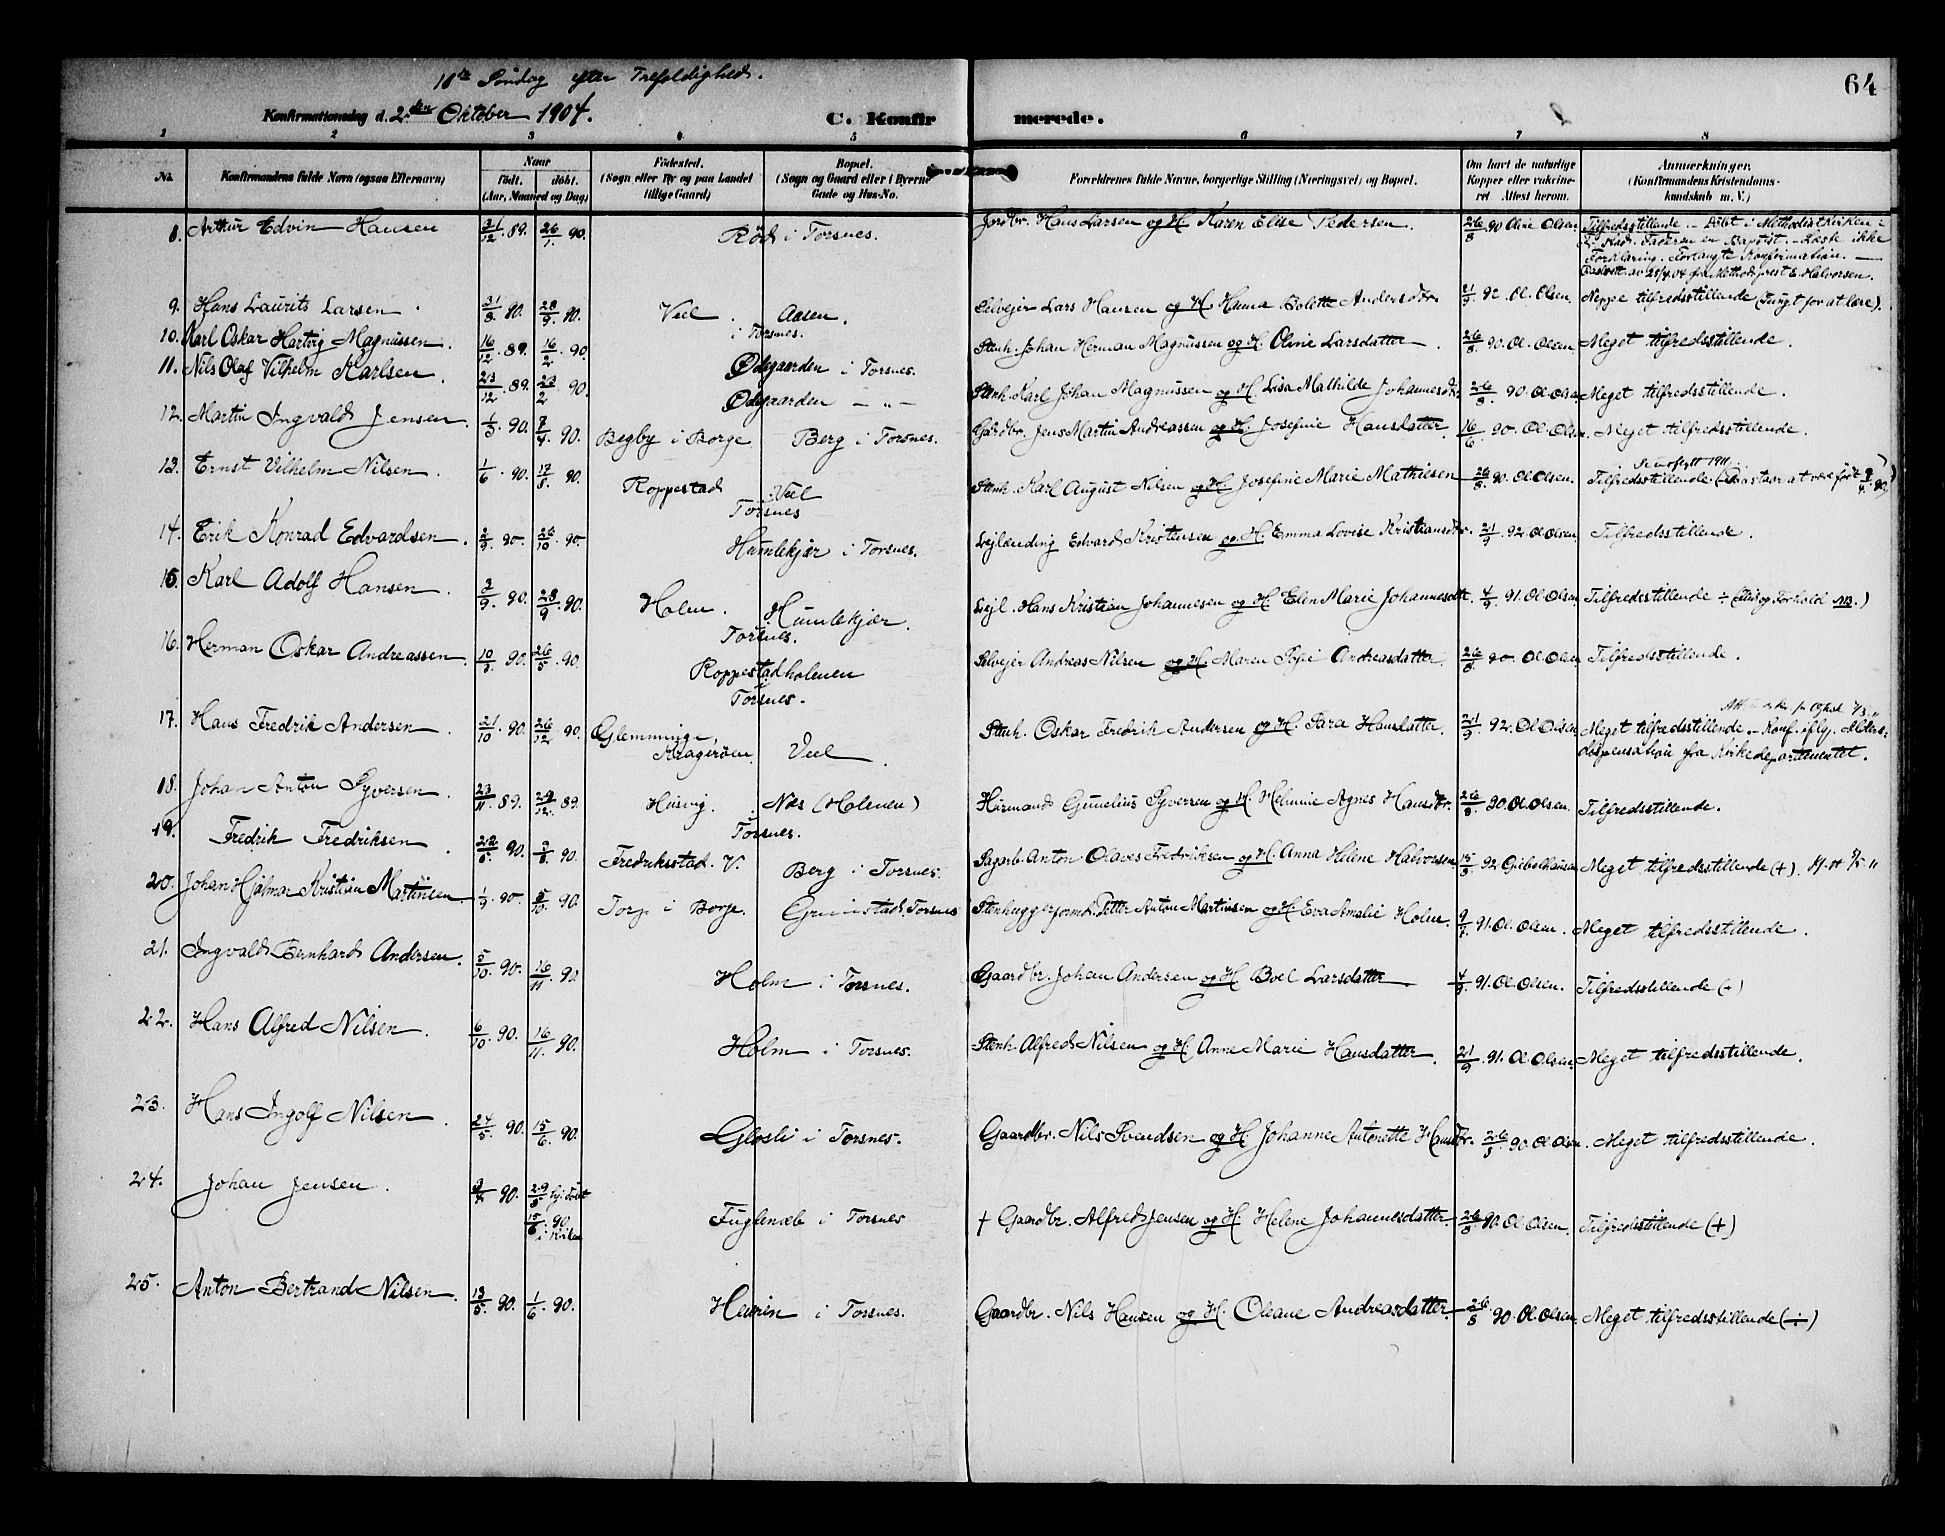 18de Søndag efter Trefoldighed.
64
Konfirmationsdag d. 2den Oktober 1904.
C. Konfirmerede.
1 2 3 4 5 6 7 8
No. Konfirmandens fulde Navn (ogsaa Efternavn) Naar født. døbt. (Aar, Maaned og Dag) Fødested. (Sogn eller By og paa Landet tillige Gaard) Bopæl. (Sogn og Gaard eller i Byerne Gade og Hus-No. Forældrenes fulde Navne, borgerlige Stilling (Næringsvei) og Bopæl. Om havt de naturlige Kopper eller vakcineret. Attest herom. Anmærkninger. (Konfirmandens Kristendomskundskab m. V.)
8. Arthur Edvin Hansen 21/12 89. 26/1. 90. Rød i Torsnes. Jordbr. Hans Larsen og H. Karen Elise Pedersen. 26/8 90 Oline Olsen Tilfredsstillende. – Døbt i Methodistkirken i
Fr.stad. Faderen er Baptist. – Læste ikke
Forklaring. Forlangte Konfirmation. –
av 28/4 04 fra Methodistprest E. Halvorsen.
9. Hans Laurits Larsen. 31/8 90. 28/9 90. Veel. Aasen. Selvejer Lars Hansen og H. Hanna Bolette Andersdtr. 21/9 92. Ol. Olsen. Neppe tilfredsstillende (Tungt for at lære).
i Torsnes.
10. Karl Oskar Hartvig Magnussen. 16/12. 89. 16/2. 90. Ødegaarden i Torsnes. Stenh. Johan Herman Magnussen og H. Oline Larsdatter. 26/8 90. Ol. Olsen Meget tilfredsstillende.
11. Nils Olaf Vilhelm Karlsen. 23/12. 89. 23/2 90. Ødegaarden – „ – Stenh. Karl Johan Magnussen og H. Lisa Mathilde Johannesdtr. 26/8 90. Ol. Olsen Meget tilfredsstillende.
12. Martin Ingvald Jensen. 1/3 90. 7/4. 90. Begby i Borge Berg i Torsnes. Gårdbr. Jens Martin Andreassen og H. Josefine Hansdatter. 16/6 90. Ol. Olsen. Meget tilfredsstillende.
13. Ernst Vilhelm Nilsen. 1/6. 90. 17/8. 90. Roppestad Veel Stenh. Karl August Nilsen og H. Josefine Marie Mathiesen 26/8. 90. Ol. Olsen. Tilfredsstillende. (Paastaar at være født 9/4. 90)
Torsnes
14. Erik Konrad Edvardsen. 2/9. 90. 26/10. 90. Humlekjær i Torsnes. Lejlænding Edvard Kristensen og H. Emma Lovise Kristiansdtr. 21/9. 92. Ol. Olsen Tilfredsstillende.
15. Karl Adolf Hansen. 3/9. 90. 28/9. 90. Holm. Humlekjær. Lejl. Hans Kristian Johannesen og H. Elen Marie Johannesdtr. 4/9. 91. Ol. Olsen Tilfredsstillende ÷ (Flid og Forhold NB.)
Torsnes.
16. Herman Oskar Andreassen. 10/3. 90. 26/5. 90. Roppestadholmen Selvejer Andreas Nilsen og H. Maren Sofie Andreasdatter. 26/8. 90. Ol. Olsen Tilfredsstillende.
i Torsnes.
17. Hans Fredrik Andersen. 21/10. 90. 26/12. 90. Glemminge, Kragerøen Veel. Stenh. Oskar Fredrik Andersen og H. Sara Hansdatter. 21/9. 92. Ol. Olsen Meget tilfredsstillende. – Konf. iflg. Alders-
dispensation fra Kirkedepartementet.
18. Johan Anton Syversen. 23/11. 89. 29/12. 89. Husvig. Næs (Holmen) Husmand Gunelius Syversen og H. Helmine Agnes Hansdtr. 26/8. 90. Ol. Olsen. Tilfredsstillende.
Torsnes.
19. Fredrik Fredriksen. 22/5. 90. 3/8. 90. Fredriksstad. V. Berg i Torsnes. Sagarb. Anton Olaves Fredriksen og H. Anna Helene Halvorsen 15/3 92 Meget tilfredsstillende (+).
20. Johan Hjalmar Kristian Martinsen 1/9. 90. 5/10. 90. Torp i Borge. Grimstad, Torsnes Stenhuggerformd. Petter Anton Martinsen og H. Eva Amalie Holm. 9/7. 91. Ol. Olsen. Meget tilfredsstillende.
21. Ingvald Bernhard Andersen. 5/10. 90. 16/11. 90. Holm i Torsnes. Gaardbr. Johan Andersen og H. Boel Larsdatter 4/9. 91. Ol. Olsen. Tilfredsstillende (÷)
22. Hans Alfred Nilsen. 6/10. 90. 16/11. 90. Holm i Torsnes. Stenh. Alfred Nilsen og H. Anne Marie Hansdatter. 21/9. 91. Ol. Olsen. Meget tilfredsstillende.
23. Hans Ingolf Nilsen. 24/5. 90. 15/6. 90. Glosli i Torsnes. Gaardbr. Nils Svendsen og H. Johanne Antonette Hansdtr. 26/8. 90. Ol. Olsen. Meget tilfredsstillende.
24. Johan Jensen. 3/4 90. 29/3 hj. døbt
15/6. 90. i Kirken Fuglenæb i Torsnes † Gaardbr. Alfred Jensen og H. Helene Johannesdatter. 26/8. 90. Ol. Olsen. Tilfredsstillende (+)
25. Anton Bertrand Nilsen. 13/5. 90. 1/6. 90. Heurin i Torsnes. Gaardbr. Nils Hansen og H. Oleane Andreasdatter. 26/8. 90. Ol. Olsen. Meget tilfredsstillende (÷)